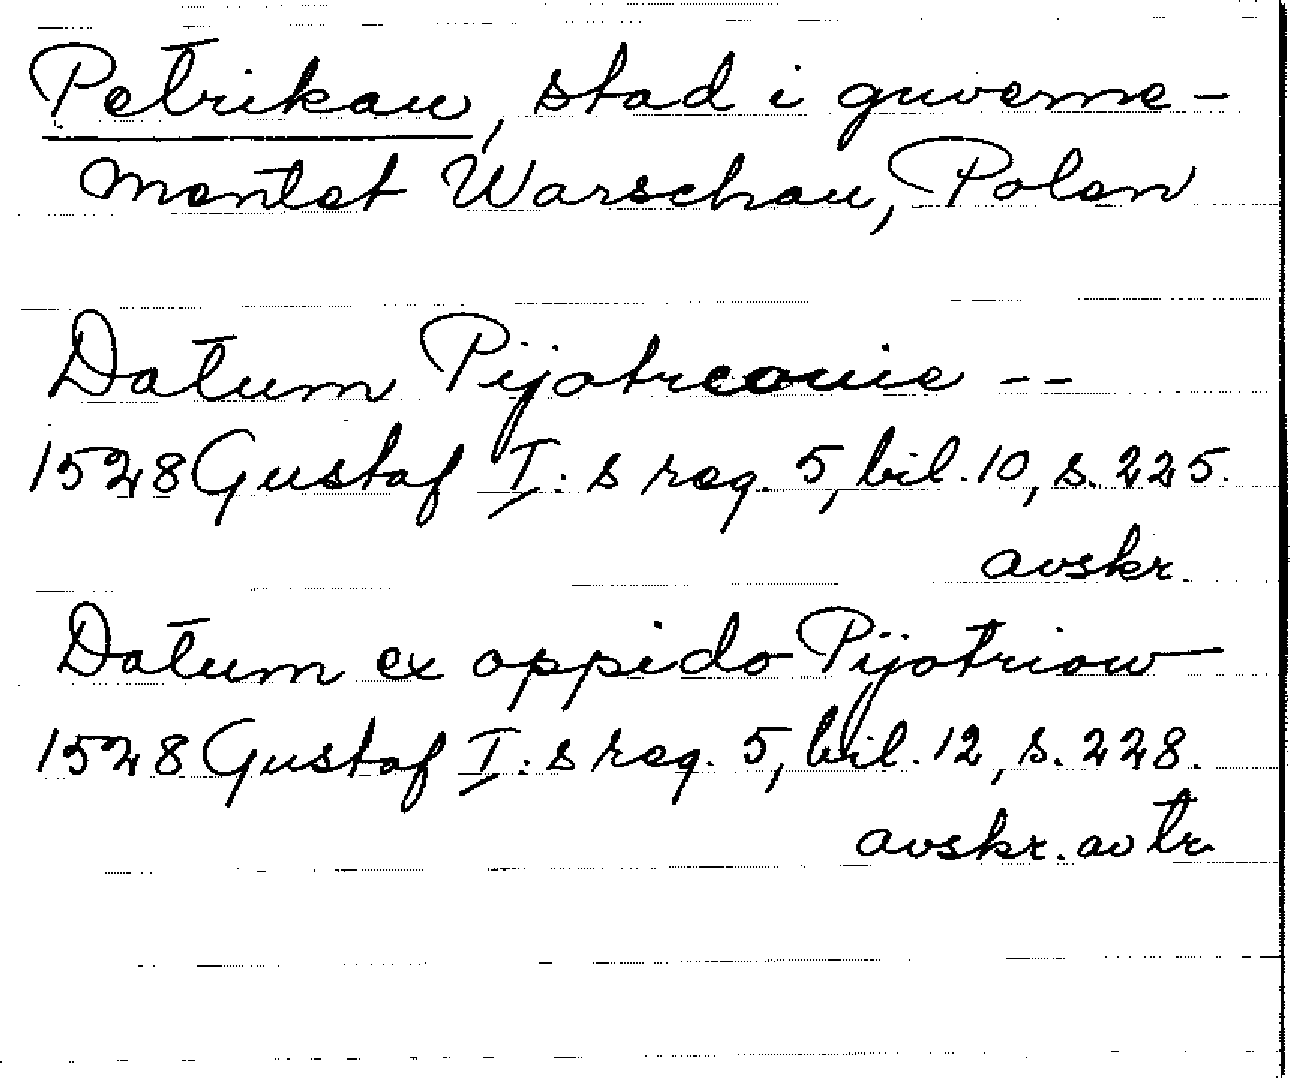 Petrikau, stad i guverne-
mentet Warschau, Polen
Datum Pijotrcouie --
1528 Gustaf I:s reg. 5, bil. 10, s. 225.
avskr.
Datum ex oppido Pijotriow
1528 Gustaf I:s reg. 5, bil. 12, s. 228.
avskr. av tr.